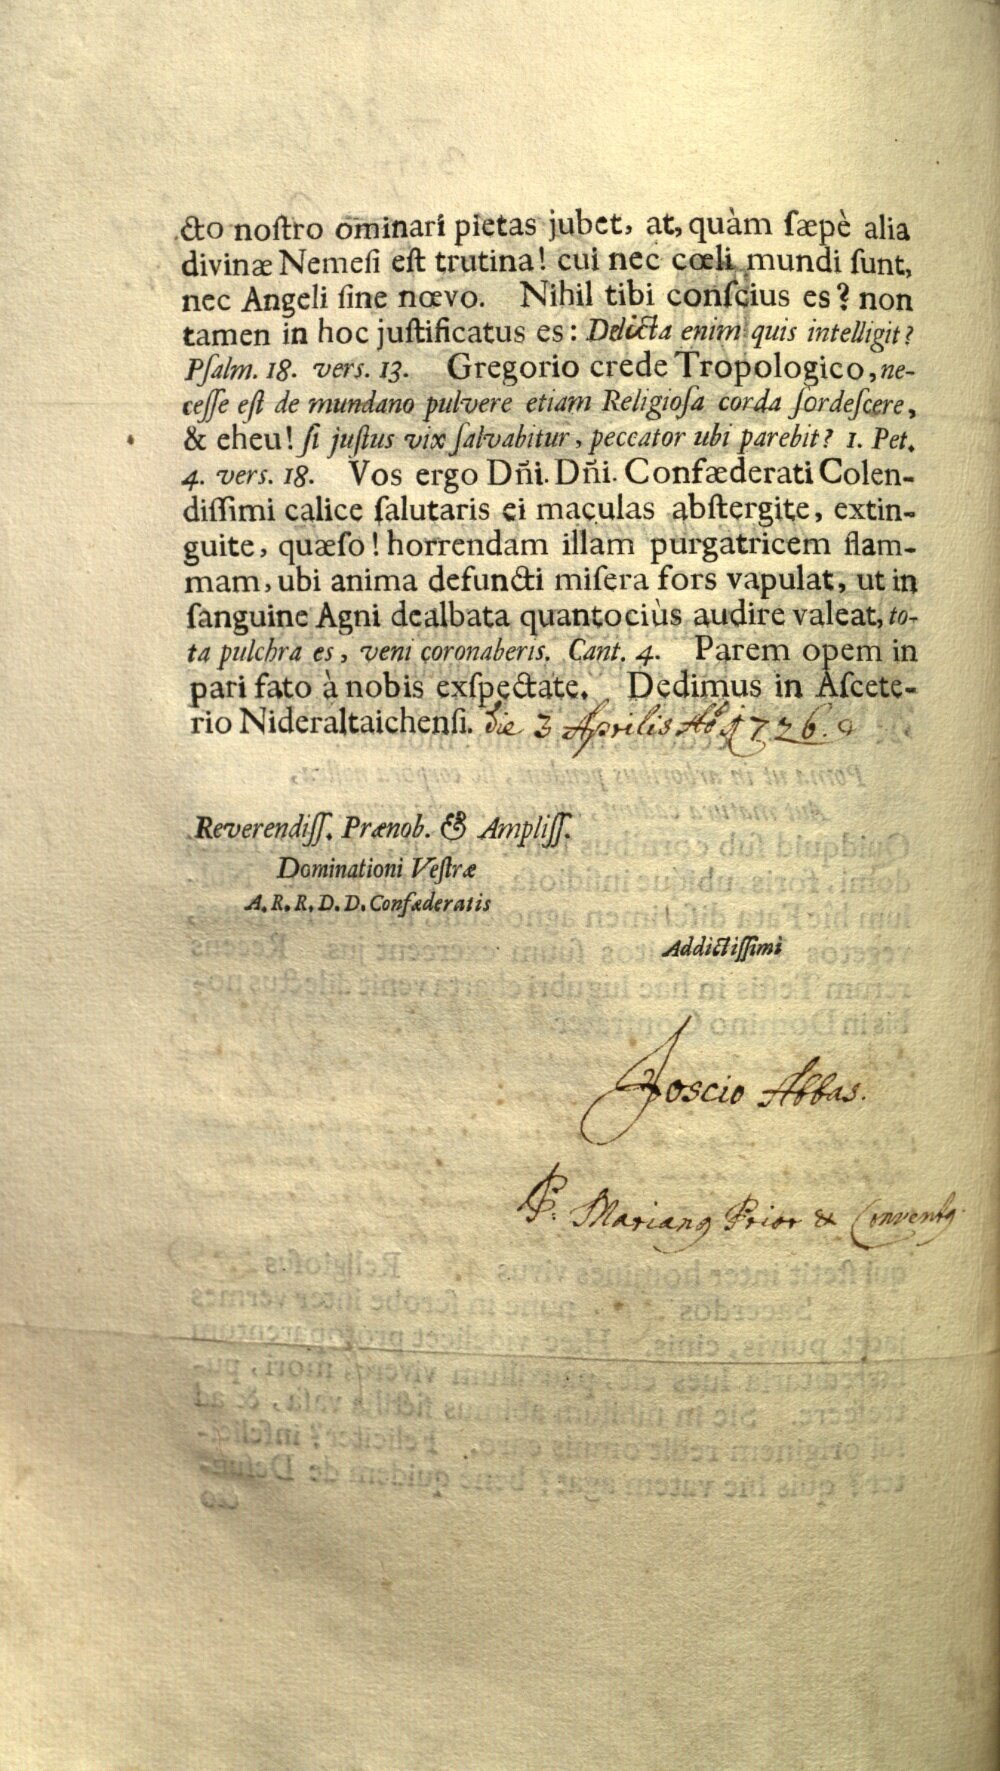 cto noſtro ominari pietas jubet, at, quàm ſæpè alia
divinæ Nemeſi eſt trutina! cui nec cœli mundi ſunt,
nec Angeli ſine nœvo. Nihil tibi conſcius es? non
tamen in hoc juſtificatus es: Delicta enim quis intelligit?
Pſalm. 18. verſ. 13. Gregorio crede Tropologico, ne-
ceſſe eſt de mundano pulvere etiam Religioſa corda ſordeſcere,
& eheu! ſi juſtus vix ſalvabitur, peccator ubi parebit? 1. Pet.
4. verſ. 18. Vos ergo Dñi. Dñi. Confæderati Colen-
diſſimi calice ſalutaris ei maculas abſtergite, extin-
guite, quæſo! horrendam illam purgatricem flam-
mam, ubi anima defuncti miſera fors vapulat, ut in
ſanguine Agni dealbata quantociùs audire valeat, to-
ta pulchra es, veni coronaberis. Cant. 4. Parem opem in
pari fato à nobis exſpectate. Dedimus in Aſcete-
rio Nideraltaichenſi. die 3 Aprilis Aõ 1726.
Reverendiſſ. Prænob. & Ampliſſ.
Dominationi Veſtræ
A. R. R. D. D. Confæderatis
Addictiſſimi
Joscio Abbas.
P. Marianꝰ Prior & Conventꝰ